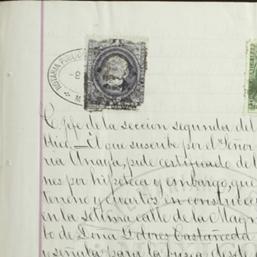 NOTARIA PUBLICA
C. Jefe de la seccion segunda del
que suscribe por el Señor
ria Unaga, pide certificado de
nes por hipoteca y embargo, que
terreno y cuartos en construcc
en la sétima calle de la Magn
to de Doña Dolores Castañeda
y señala para la busca desde e